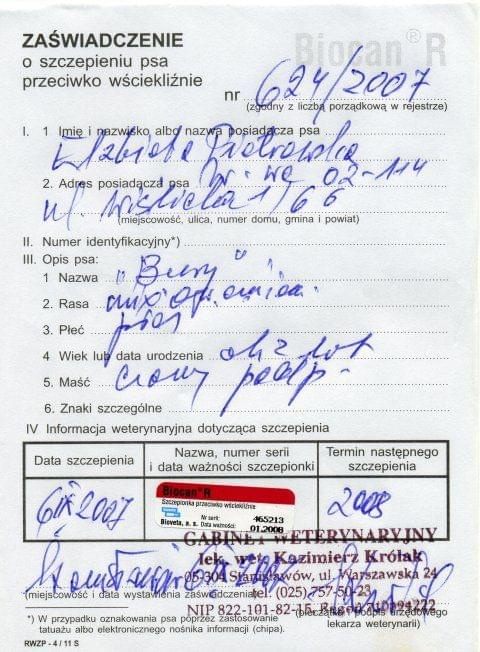 ZAŚWIADCZENIE
o szczepieniu psa
przeciwko wściekliźnie
Biocan® R
nr 624/2007
(zgodny z liczbą porządkową w rejestrze)
I. 1 Imię i nazwisko albo nazwa posiadacza psa
Elżbieta Piotrowska
2. Adres posiadacza psa W-wa 02-114
ul. 1/66
(miejscowość, ulica, numer domu, gmina i powiat)
II. Numer identyfikacyjny*)
III. Opis psa:
1 Nazwa "Bury"
2. Rasa mix
3. Płeć pies
4 Wiek lub data urodzenia ok 2 lat
5. Maść czarny podp.
6. Znaki szczególne
IV Informacja weterynaryjna dotycząca szczepienia
Data szczepienia
Nazwa, numer serii
i data ważności szczepionki
Termin następnego
szczepienia
6 IX 2007
Biocan® R
Szczepionka przeciwko wściekliźnie
Nr serii: 465213
Bioveta, a. s. Data ważności: 01.2009
2008
GABINET WETERYNARYJNY
lek. wet. Kazimierz Królak
05-304 Stanisławów, ul. Warszawska 24
tel. (025) 757-50-23
NIP 822-101-82-15,
(miejscowość i data wystawienia zaświadczenia)
(pieczątka i podpis urzędowego
lekarza weterynarii)
*) W przypadku oznakowania psa poprzez zastosowanie
tatuażu albo elektronicznego nośnika informacji (chipa).
RWZP - 4 / 11 S